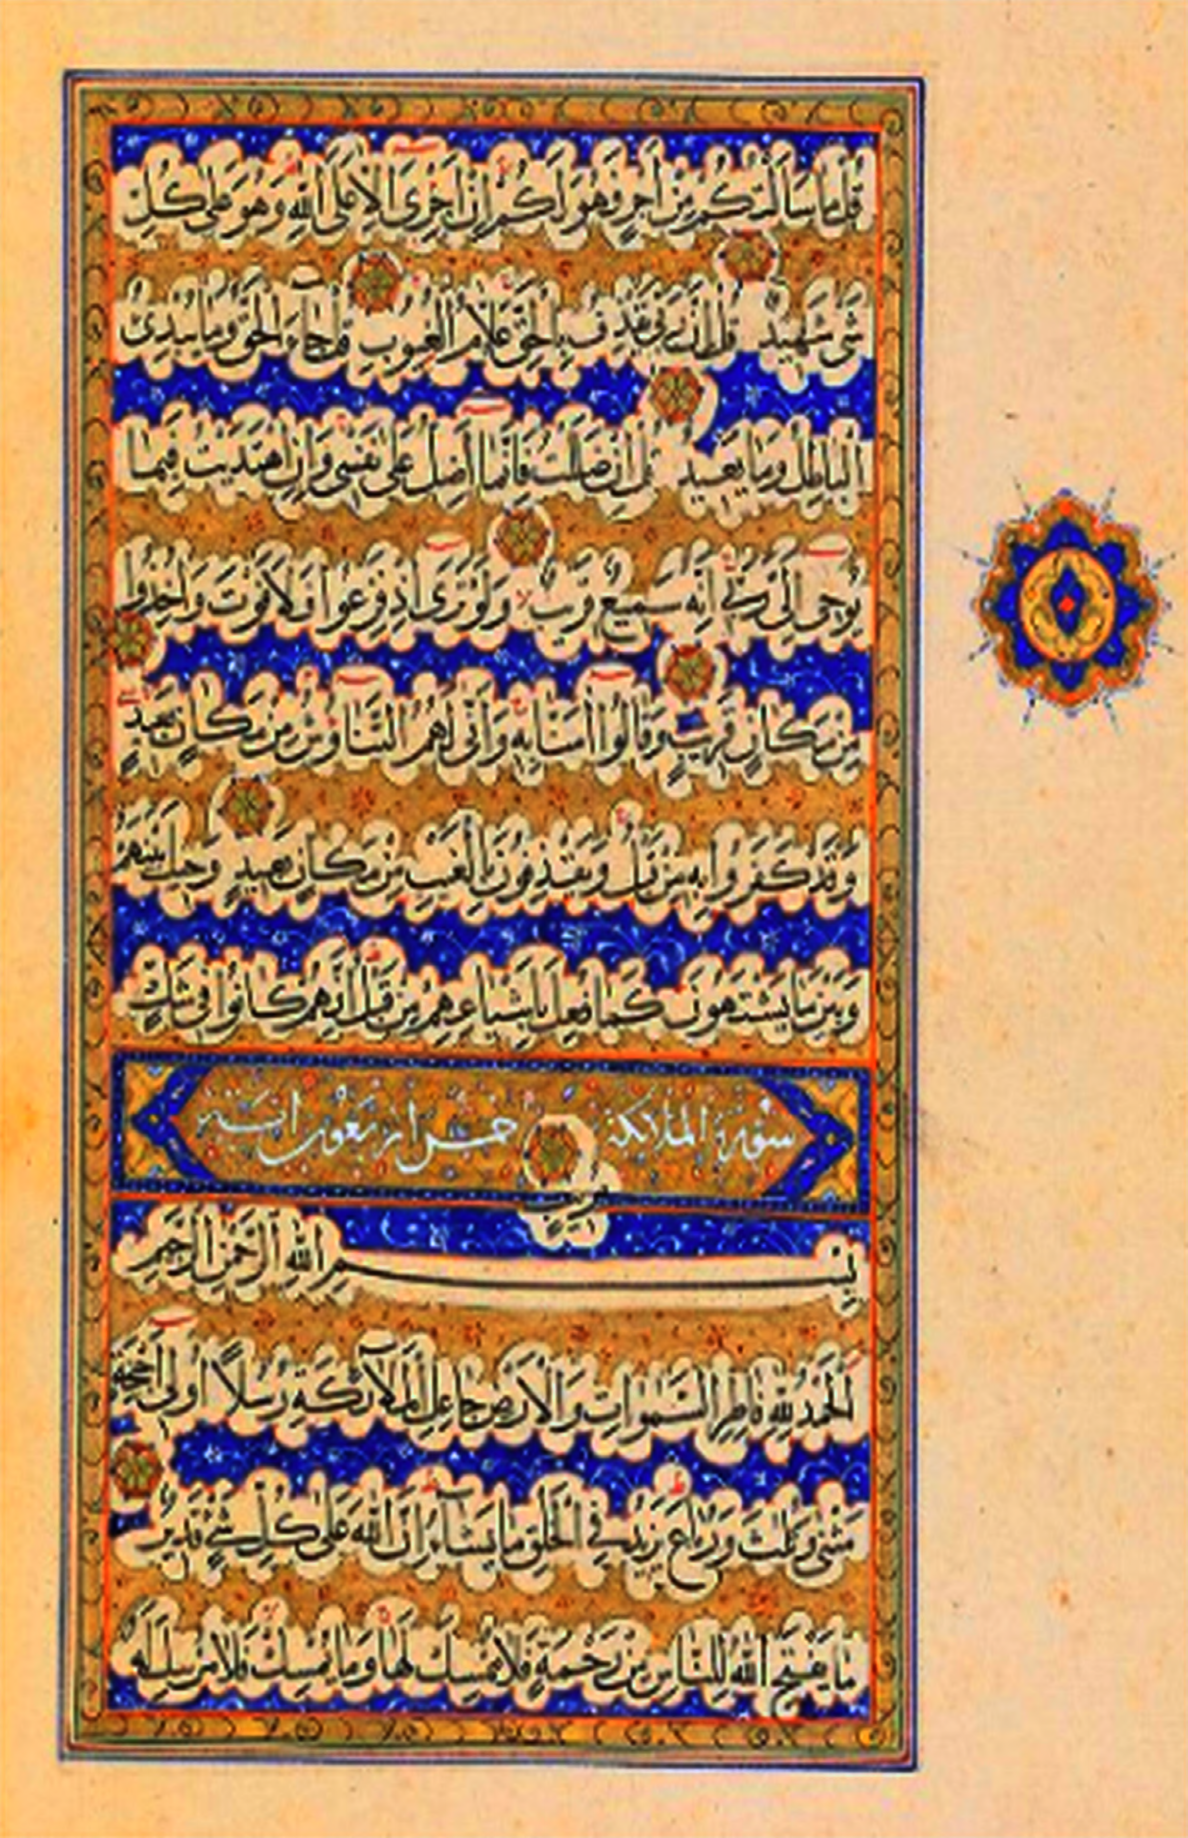 قُلْ مَا سَأَلْتُكُمْ مِنْ أَجْرٍ فَهُوَ لَكُمْ إِنْ أَجْرِيَ إِلَّا عَلَى اللّٰهِ وَهُوَ عَلَى كُلِّ
شَيْءٍ شَهِيدٌ قُلْ إِنَّ رَبِّي يَقْذِفُ بِالْحَقِّ عَلَّامُ الْغُيُوبِ قُلْ جَاءَ الْحَقُّ وَمَا يُبْدِئُ
الْبَاطِلُ وَمَا يُعِيدُ قُلْ إِنْ ضَلَلْتُ فَإِنَّمَا أَضِلُّ عَلَى نَفْسِي وَإِنِ اهْتَدَيْتُ فَبِمَا
يُوحِي إِلَيَّ رَبِّي إِنَّهُ سَمِيعٌ قَرِيبٌ وَلَوْ تَرَى إِذْ فَزِعُوا فَلَا فَوْتَ وَأُخِذُوا
مِنْ مَكَانٍ قَرِيبٍ وَقَالُوا آمَنَّا بِهِ وَأَنَّى لَهُمُ التَّنَاوُشُ مِنْ مَكَانٍ بَعِيدٍ
وَقَدْ كَفَرُوا بِهِ مِنْ قَبْلُ وَيَقْذِفُونَ بِالْغَيْبِ مِنْ مَكَانٍ بَعِيدٍ وَحِيلَ بَيْنَهُمْ
وَبَيْنَ مَا يَشْتَهُونَ كَمَا فُعِلَ بِأَشْيَاعِهِمْ مِنْ قَبْلُ إِنَّهُمْ كَانُوا فِي شَكٍّ
مُرِيبٍ
سورة الملائكة خمس اربعون آية
بِسْمِ اللّٰهِ الرَّحْمٰنِ الرَّحِيمِ
اَلْحَمْدُ لِلّٰهِ فَاطِرِ السَّمٰوَاتِ وَالْأَرْضِ جَاعِلِ الْمَلَائِكَةِ رُسُلًا أُولِي أَجْنِحَةٍ
مَثْنَى وَثُلٰثَ وَرُبَاعَ يَزِيدُ فِي الْخَلْقِ مَا يَشَاءُ إِنَّ اللّٰهَ عَلَى كُلِّ شَيْءٍ قَدِيرٌ
مَا يَفْتَحِ اللّٰهُ لِلنَّاسِ مِنْ رَحْمَةٍ فَلَا مُمْسِكَ لَهَا وَمَا يُمْسِكْ فَلَا مُرْسِلَ لَهُ